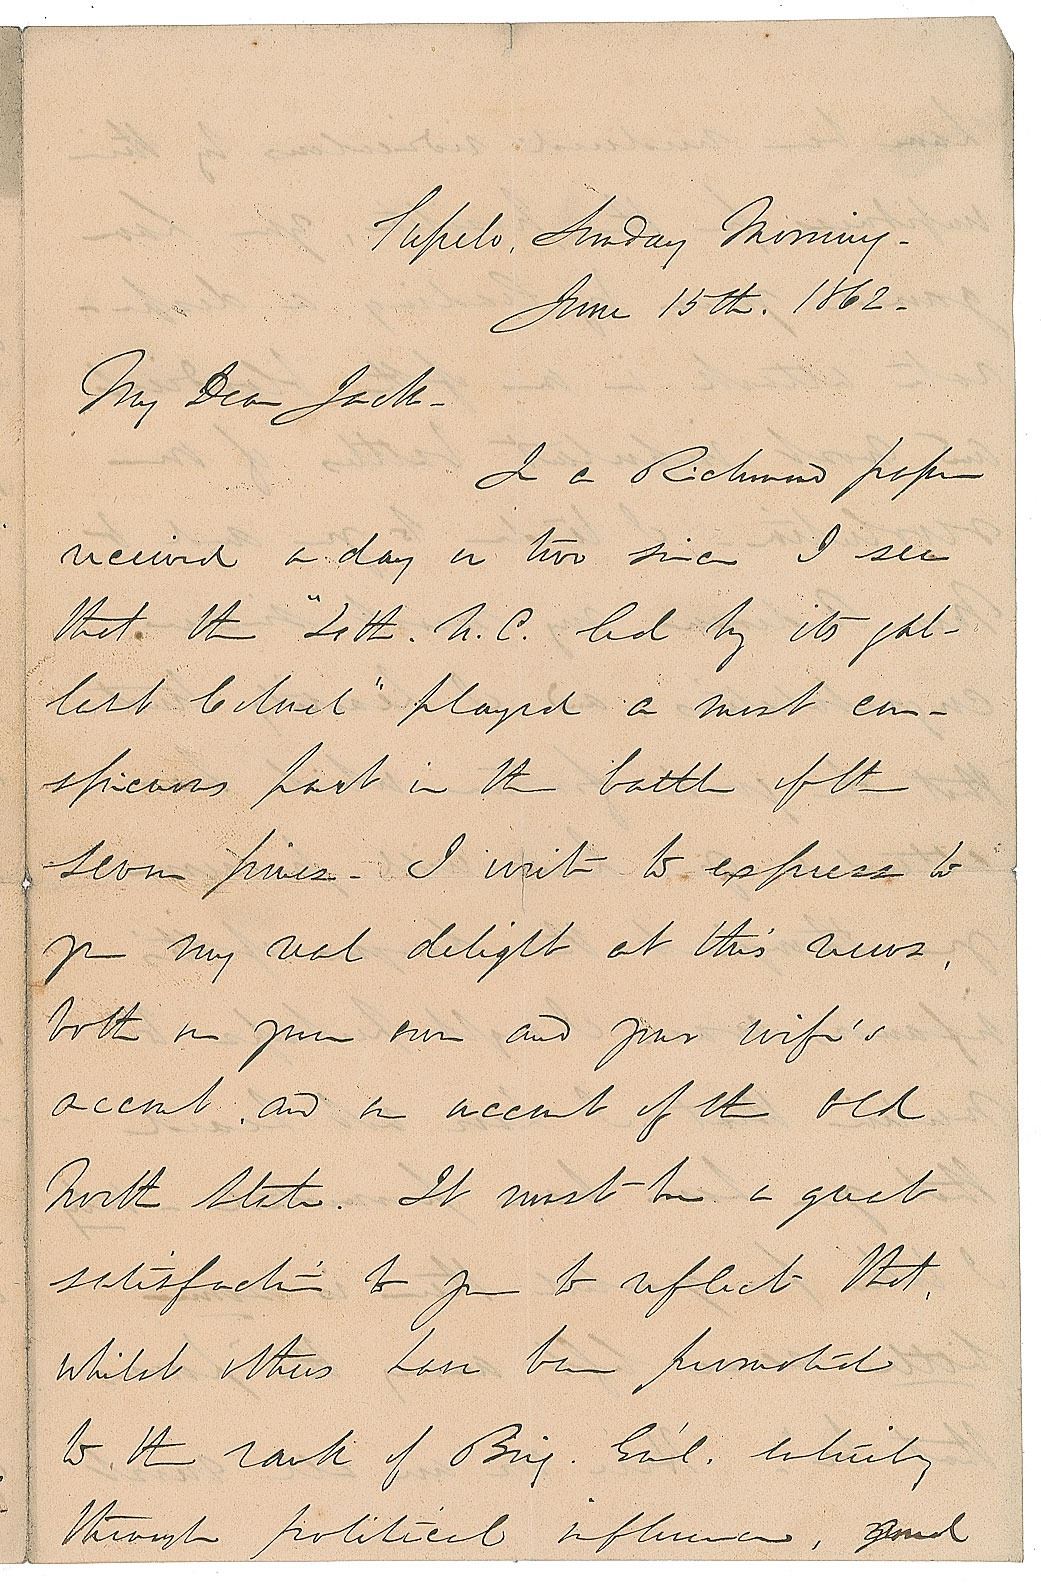 Tupelo, Sunday Morning -
June 15th. 1862 -
My Dear Jack -
In a Richmond paper
received a day or two since I see
that the "20th. N.C. led by its gal-
lant Colonel" played a most con-
spicuous part in the battle of the
seven pines - I write to express to
you my real delight at this news,
both on your own and your wife's
account, and on account of the Old
North State. It must be a great
satisfaction to you to reflect that,
whilst others have been promoted
to the rank of Brig. Gen'l. entirely
through political influence,